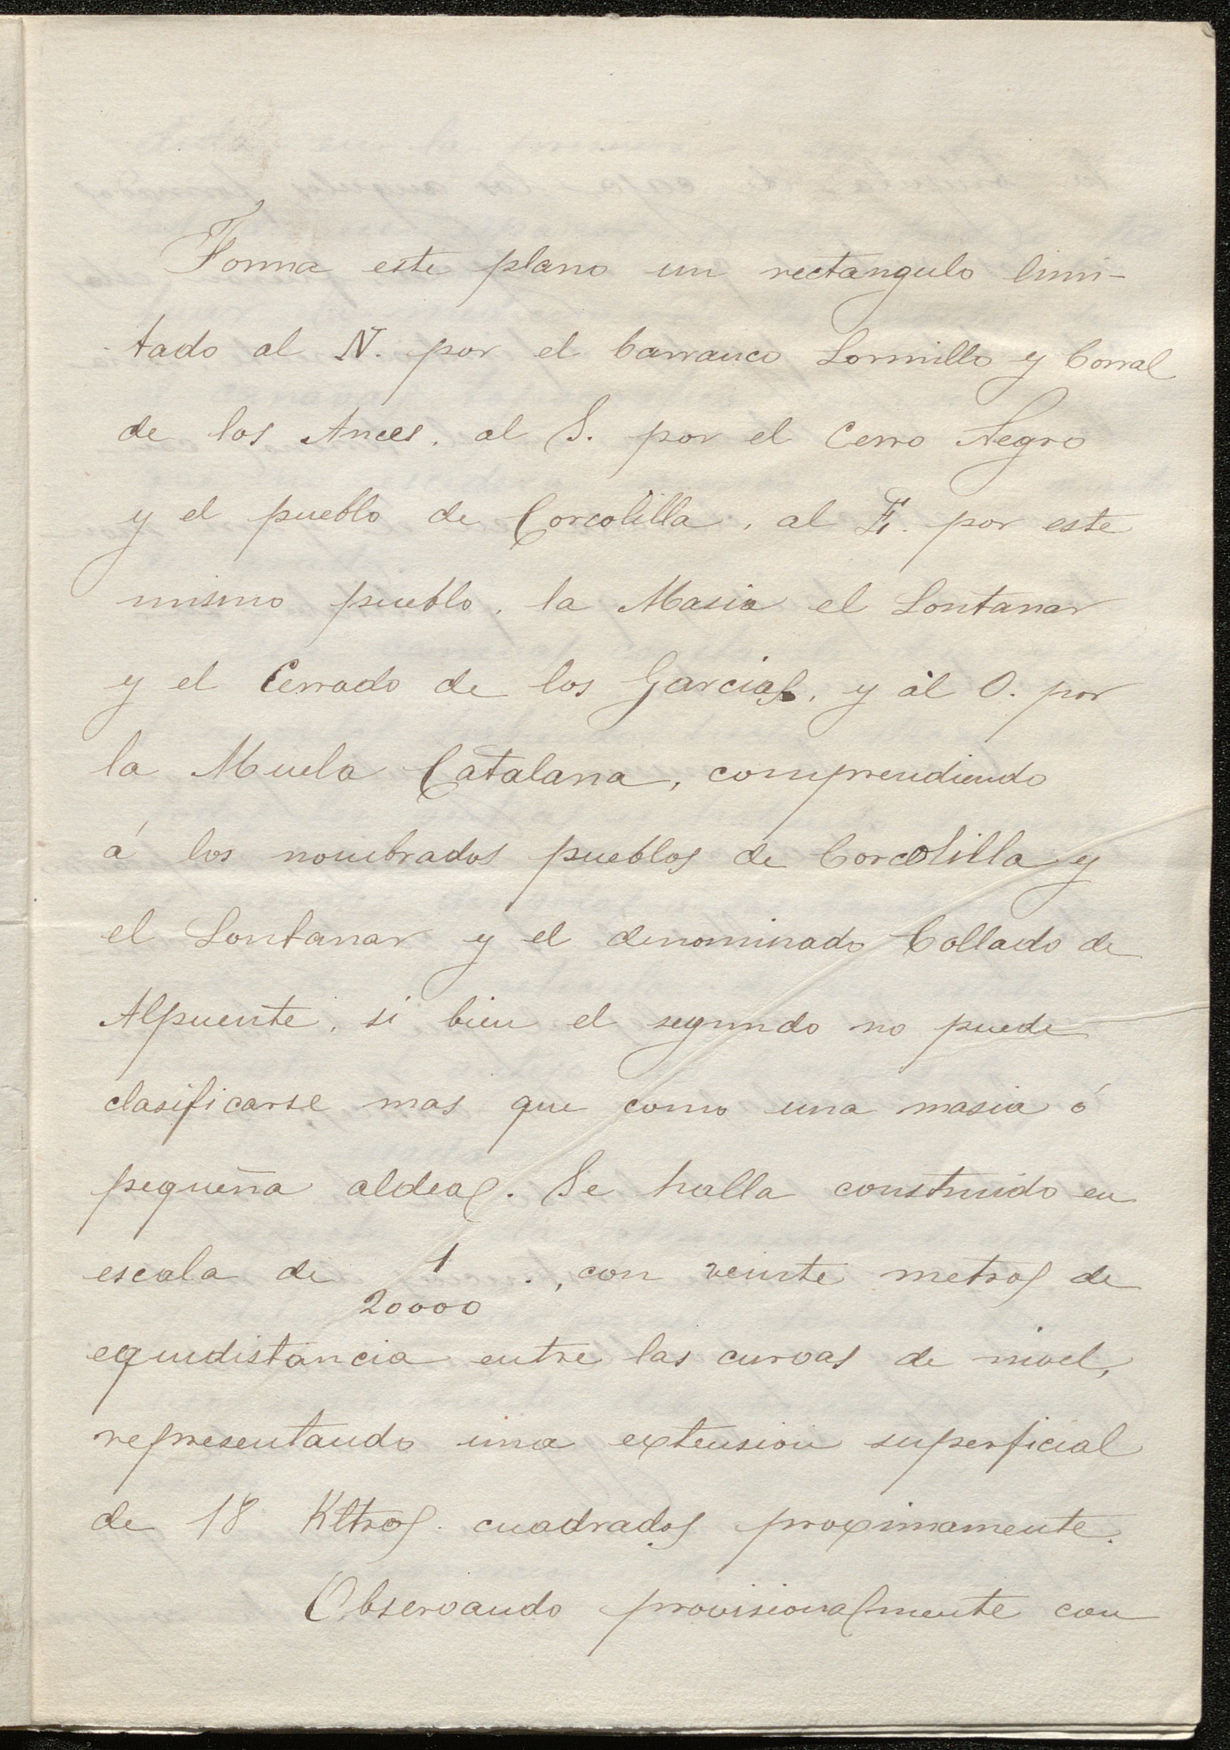 Forma este plano un rectangulo limi-
tado al N. por el barranco Lormillo y Corral
de los Arces, al S. por el Cerro Negro
y el pueblo de Corcolilla, al E. por este
mismo pueblo, la Masia el Lontanar
y el Cerrado de los Garcias, y al O. por
la Muela Catalana, comprendiendo
á los nombrados pueblos de Corcolilla y
el Lontanar y el denominado Collado de
Alpuente, si bien el segundo no puede
clasificarse mas que como una masia ó
pequeña aldea. Se halla construido en
escala de 1/20000, con veinte metros de
equidistancia entre las curvas de nivel,
representando una extension superficial
de 18 Kltros. cuadrados proximamente.
Observando provisionalmente con